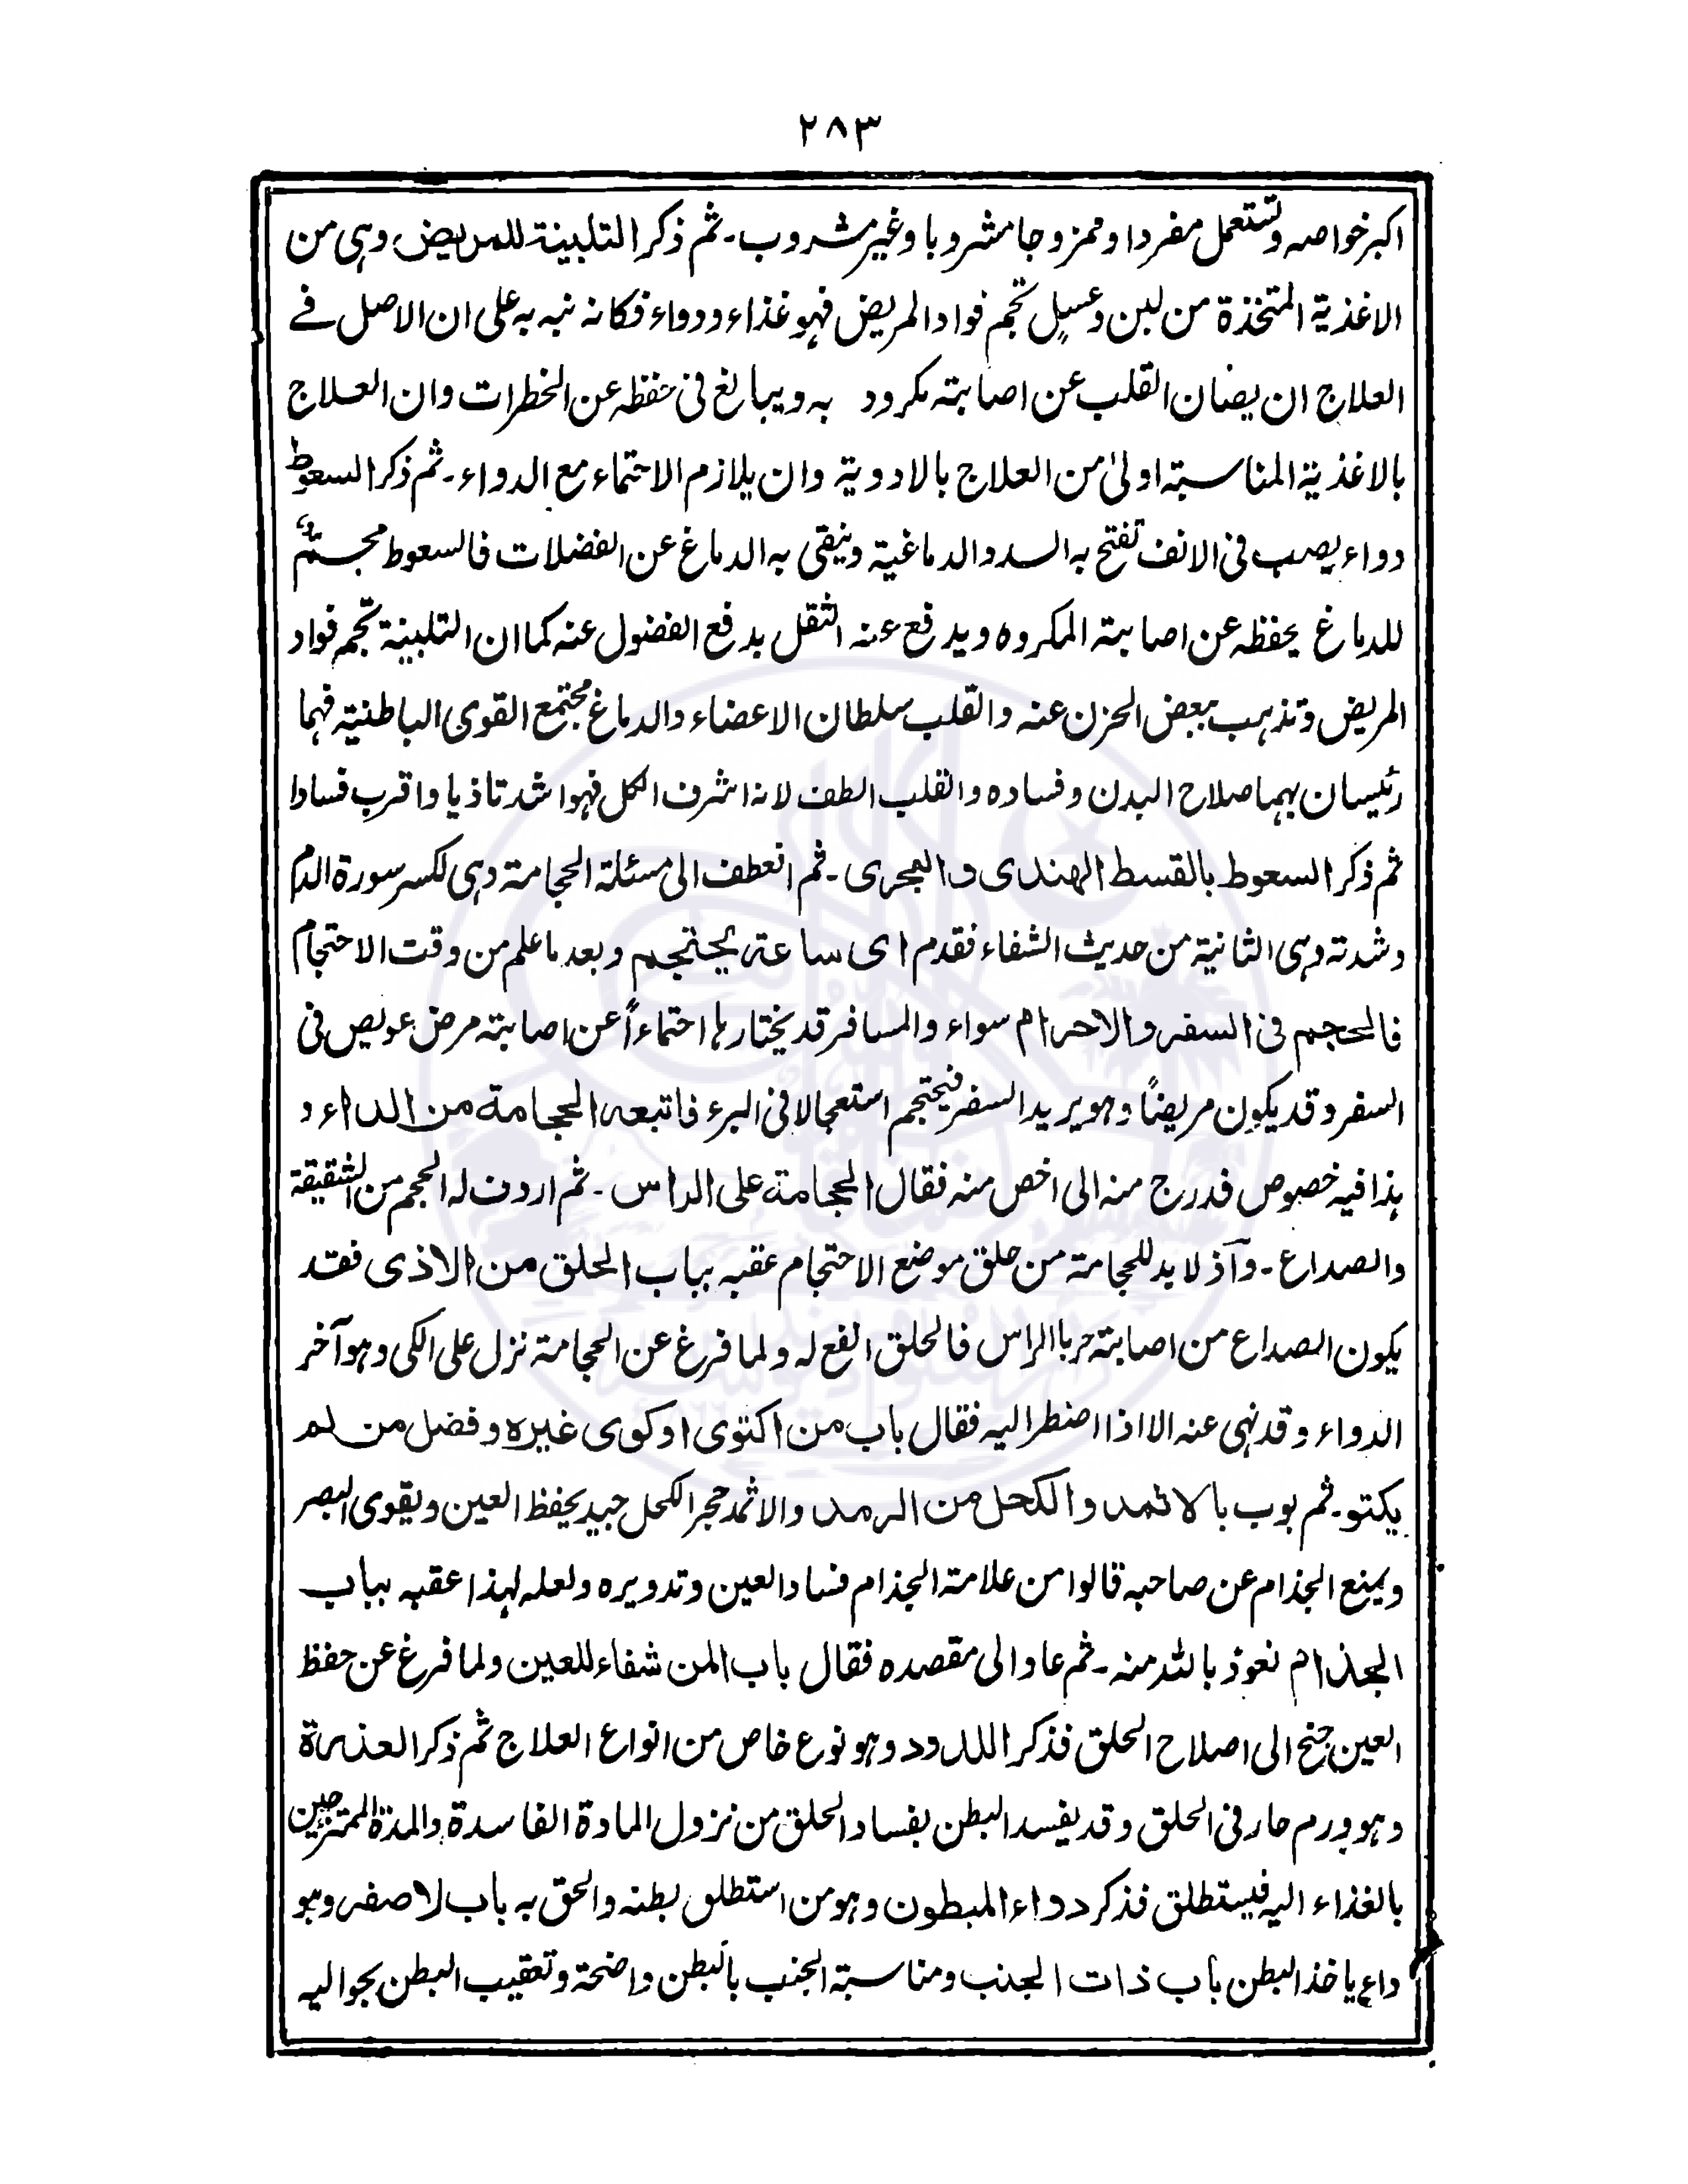 ٢٨٣
اكبر خواصه وتستعمل مفردا وممزوجا مشروبا وغير مشروب۔ ثم ذكر التلبينة للمريض وہی من
الاغذية المتخذة من لبن وعسل تجم فواد المريض فہو غذاء ودواء فكانه نبه به على ان الاصل فے
العلاج ان يصان القلب عن اصابته مكروه به ويبالغ فى حفظه عن الخطرات وان العلاج
بالاغذية المناسبة اولىٰ من العلاج بالادوية وان يلازم الاحتماء مع الدواء۔ ثم ذكر السعوط
دواء يصب فى الانف تفتح به السدد الدماغية وينقى به الدماغ عن الفضلات فالسعوط مجمة
للدماغ يحفظه عن اصابة المكروه ويدفع عنه الثقل بدفع الفضول عنه كما ان التلبينة تجم فواد
المريض وتذہب ببعض الحزن عنه والقلب سلطان الاعضاء والدماغ مجتمع القوى الباطنية فہما
رئيسان بہما صلاح البدن وفساده والقلب الطف لانه اشرف الكل فہو اشد تاذيا واقرب فسادا
ثم ذكر السعوط بالقسط الهندى والبحرى۔ ثم انعطف الى مسئلة الحجامة وہی لكسر سورة الدم
وشدته وہی الثانية من حديث الشفاء فقدم اى ساعة يحتجم وبعد ما علم من وقت الاحتجام
فالحجم فى السفر والاحرام سواء والمسافر قد يختارہا احتماءاً عن اصابة مرض عويص فى
السفر وقد يكون مريضاً وہو يريد السفر فيحتجم استعجالا فى البرء فاتبعه الحجامة من الداء و
ہذا فيه خصوص فدرج منه الى اخص منه فقال الحجامة على الراس۔ ثم اردف له الحجم من الشقيقة
والصداع۔ وآذ لا بد للحجامة من حلق موضع الاحتجام عقبه بباب الحلق من الاذى فقد
يكون الصداع من اصابة حر بالراس فالحلق انفع له ولما فرغ عن الحجامة نزل على الكى وہو آخر
الدواء وقد نہى عنه الا اذا اضطر اليه فقال باب من اكتوى او كوى غيره وفضل من لم
يكتو۔ ثم بوب بالاثمد والكحل من الرمد والاثمد حجر الكحل جيد يحفظ العين ويقوى البصر
ويمنع الجذام عن صاحبه قالوا من علامة الجذام فساد العين وتدويره ولعله لہذا عقبه بباب
الجذام نعوذ بالله منه۔ ثم عاد الى مقصده فقال باب المن شفاء للعين ولما فرغ عن حفظ
العين جنح الى اصلاح الحلق فذكر اللدود وہو نوع خاص من انواع العلاج ثم ذكر العذرة
وہو ورم حار فى الحلق وقد يفسد البطن بفساد الحلق من نزول المادة الفاسدة والمدة الممتزجين
بالغذاء اليه فيستطلق فذكر دواء المبطون وہو من استطلق بطنه والحق به باب لا صفر وہو
داء ياخذ البطن باب ذات الجنب ومناسبة الجنب بالبطن واضحة وتعقيب البطن بحواليه